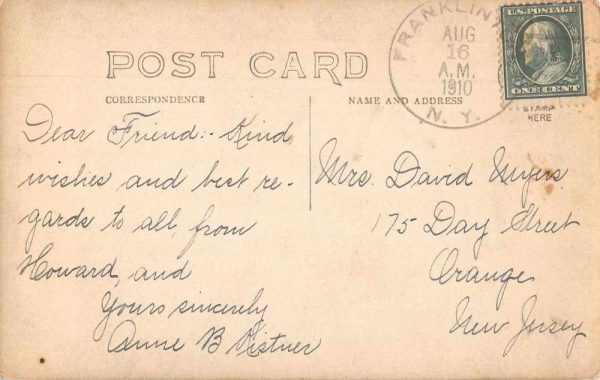 FRANKLIN
AUG
16
A.M.
1910
N. Y.
U.S. POSTAGE
ONE CENT
STAMP
HERE
POST CARD
CORRESPONDENCE
NAME AND ADDRESS
Dear Friend:- Kind
wishes and best re-
gards to all, from
Howard, and
Yours sincerely
Anne B Kistner
Mrs. David Myers
175 Day Street
Orange
New Jersey